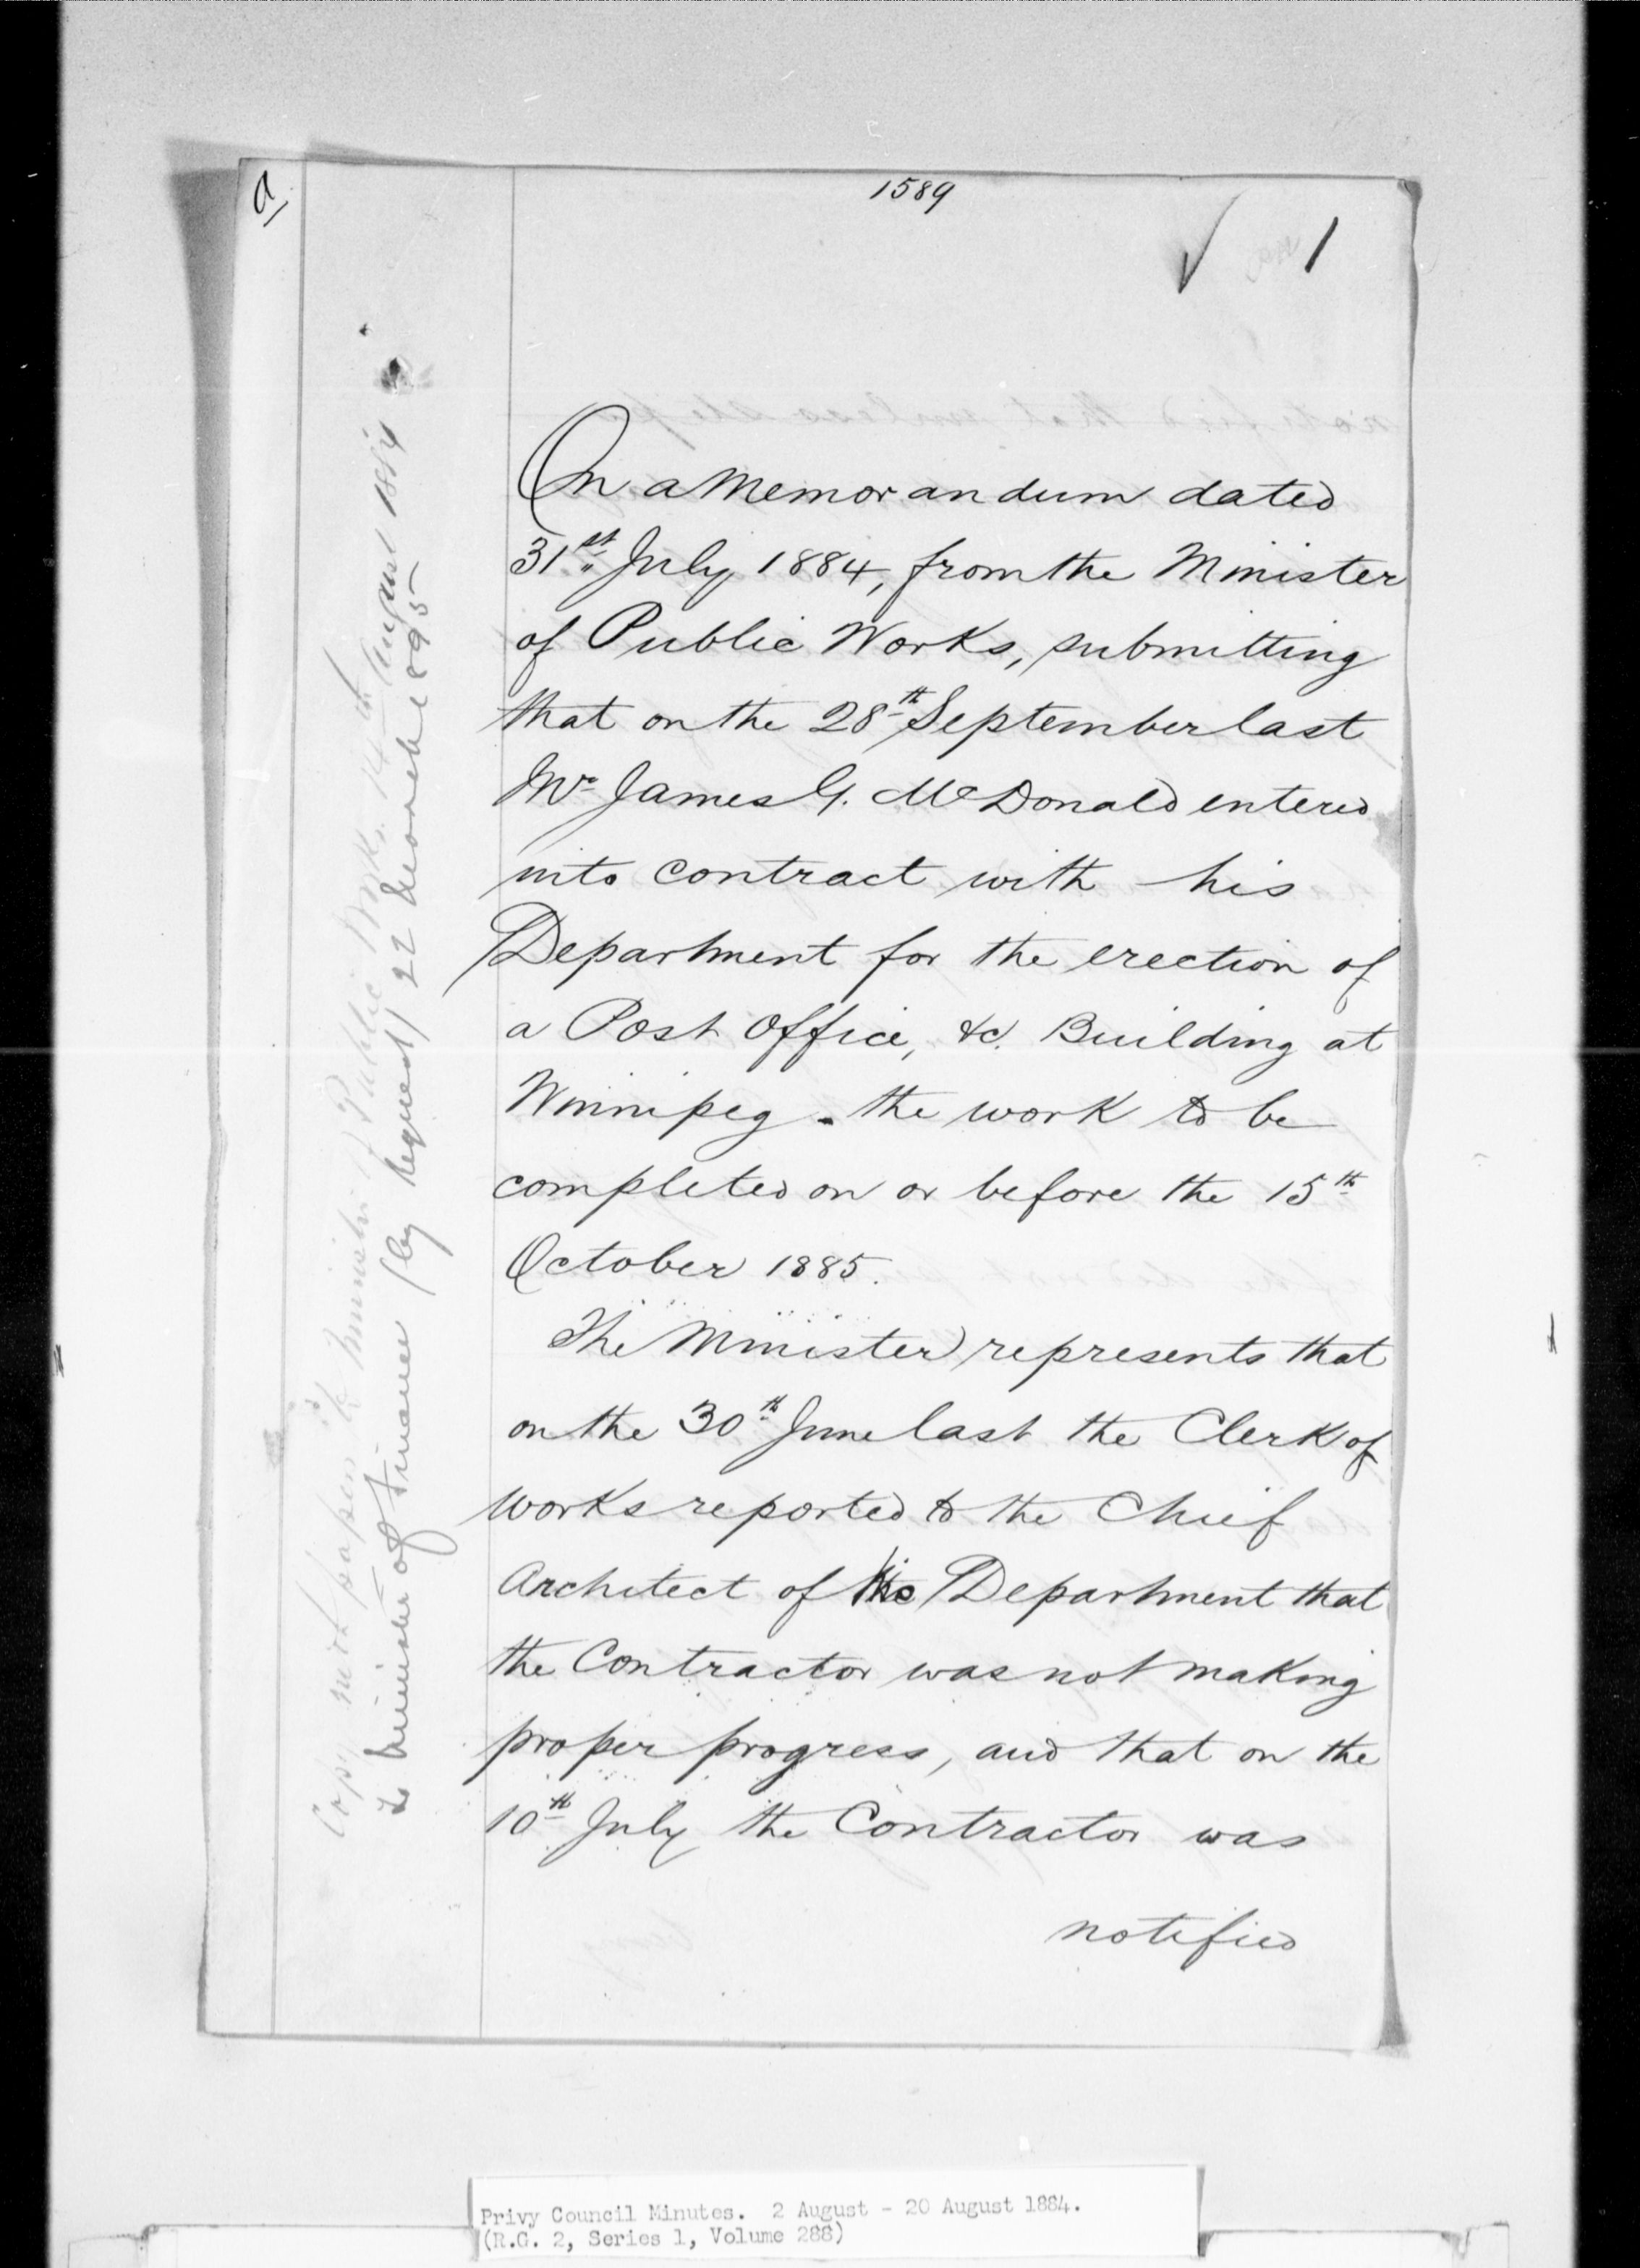 a
1589
1
On a Memorandum dated
31st July 1884, from the Minister
of Public Works, submitting
that on the 28th September last
Mr James G. McDonald entered
into contract with his
Department for the erection of
a Post Office, &c. Building at
Winnipeg - the work to be
completed on or before the 15th
October 1885.
The Minister represents that
on the 30th June last the Clerk of
Works reported to the Chief
Architect of his Department that
the Contractor was not making
proper progress, and that on the
10th July the Contractor was
notified
Copy with papers to Minister of Public Works 14th August 1884
To Minister of Finance (by request) 22 1895
Privy Council Minutes. 2 August - 20 August 1884.
(R.G. 2, Series 1, Volume 288)